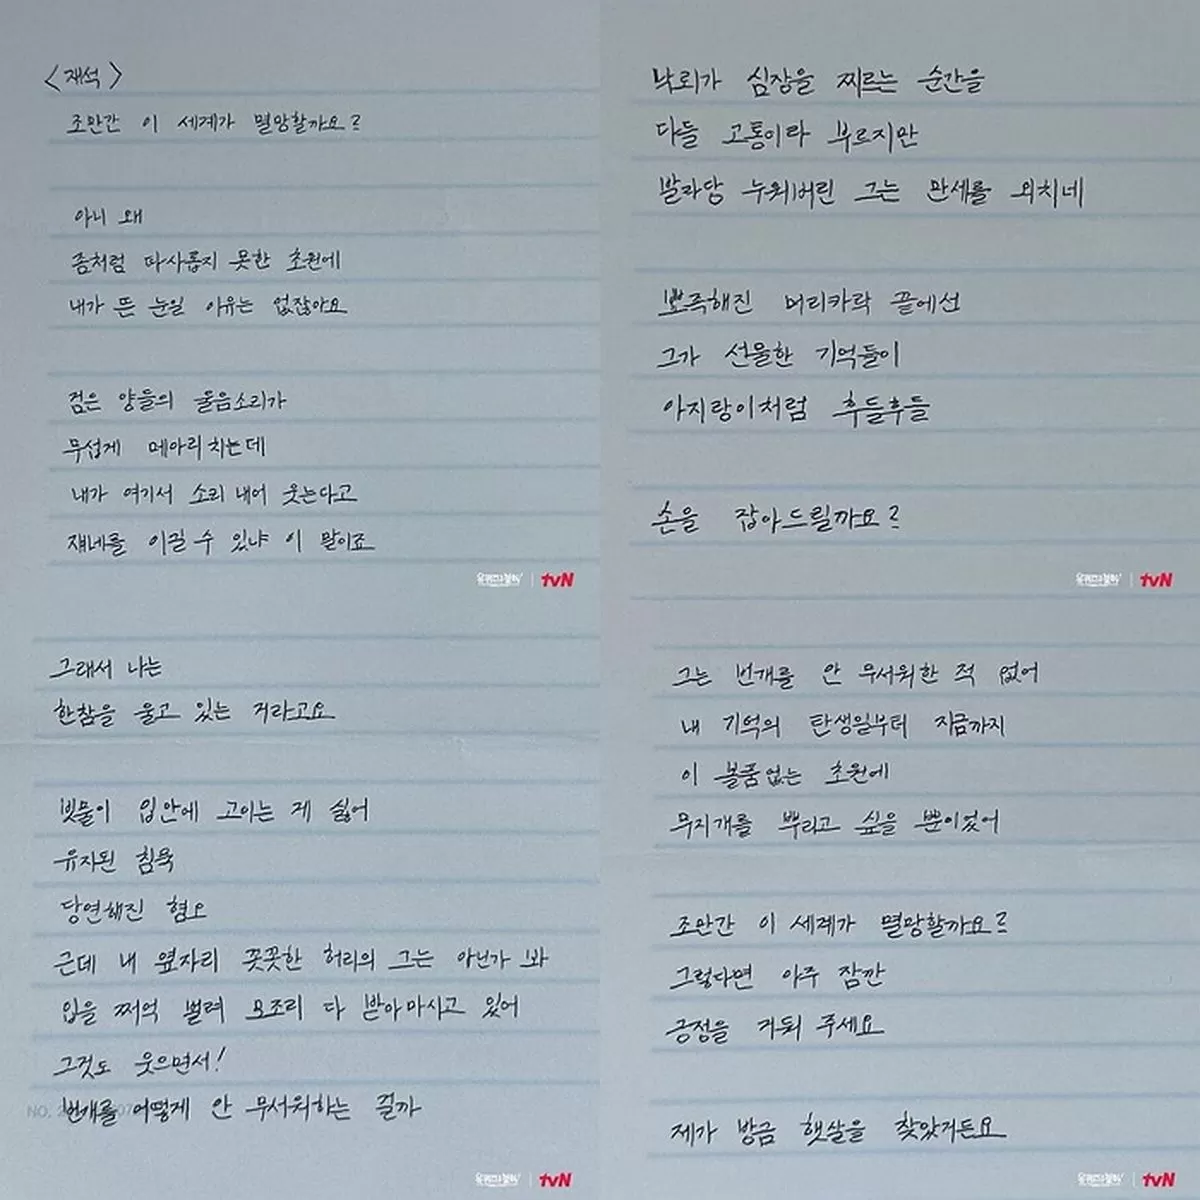 <재석>
조만간 이 세계가 멸망할까요?
아니 왜
좀처럼 따사롭지 못한 초원에
내가 뜬 눈일 이유는 없잖아요
검은 양들의 울음소리가
무섭게 메아리치는데
내가 여기서 소리 내어 웃는다고
쟤네를 이길 수 있냐 이 말이죠
tvN
그래서 나는
한참을 울고 있는 거라고요
빗물이 입안에 고이는 게 싫어
유지된 침묵
당연해진 혐오
근데 내 옆자리 꼿꼿한 허리의 그는 아닌가 봐
입을 쩌억 벌려 모조리 다 받아마시고 있어
그것도 웃으면서!
번개를 어떻게 안 무서워하는 걸까
유퀴즈온더블럭
tvN
낙뢰가 심장을 찌르는 순간을
다들 고통이라 부르지만
발라당 누워버린 그는 만세를 외치네
뾰족해진 머리카락 끝에선
그가 선물한 기억들이
아지랑이처럼 후들후들
손을 잡아드릴까요?
tvN
그는 번개를 안 무서워한 적 없어
내 기억의 탄생일부터 지금까지
이 볼품없는 초원에
무지개를 뿌리고 싶을 뿐이었어
조만간 이 세계가 멸망할까요?
그렇다면 아주 잠깐
긍정을 거둬 주세요
제가 방금 햇살을 찾았거든요
tvN